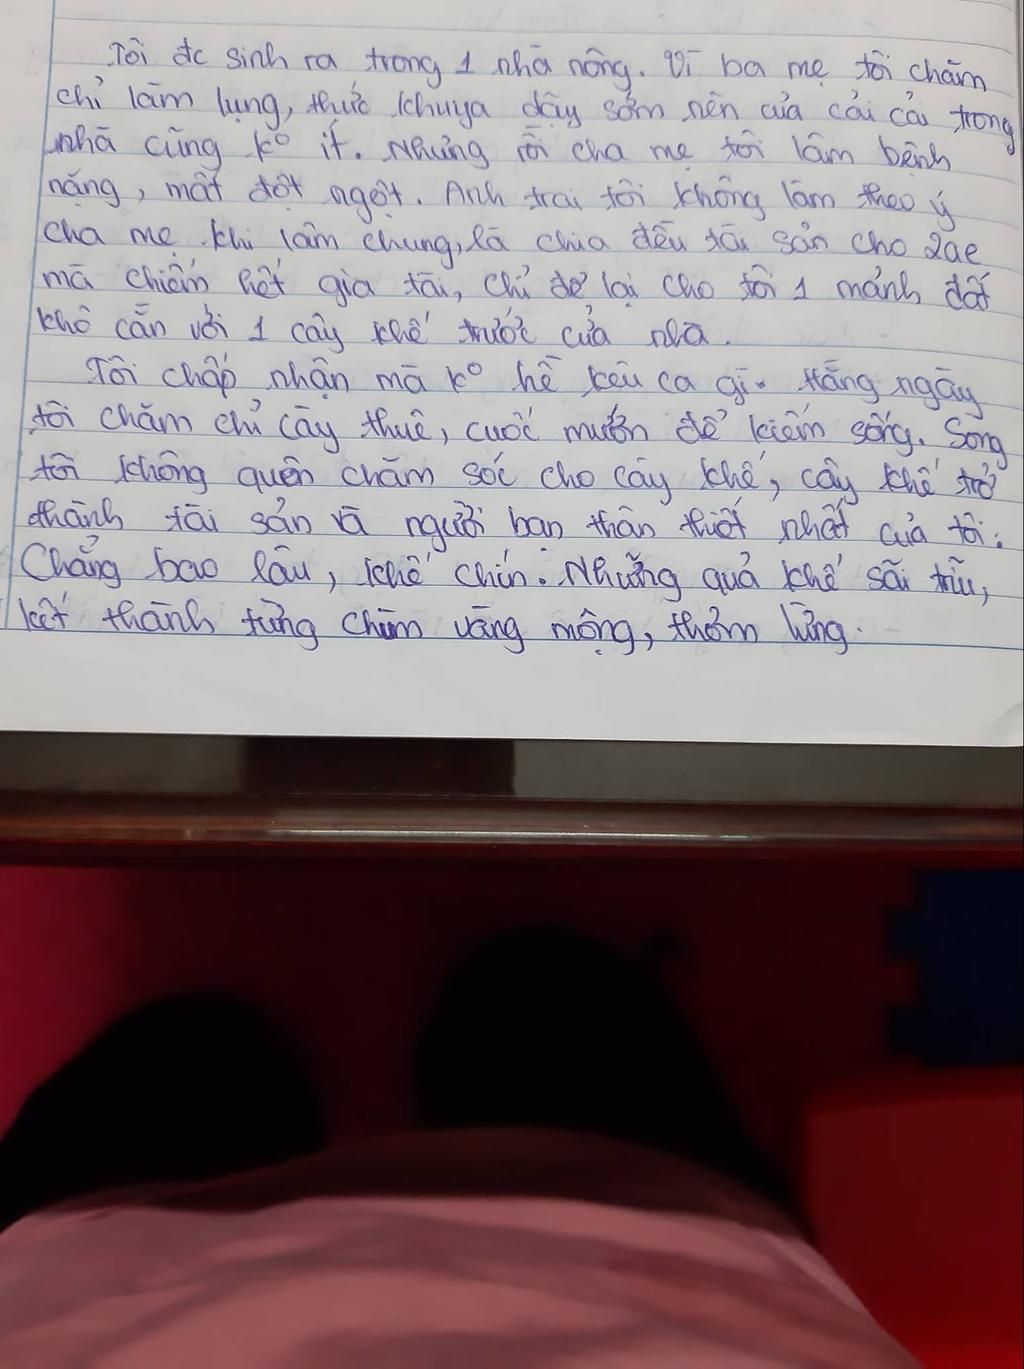 Tôi đc sinh ra trong 1 nhà nông. Vì ba mẹ tôi chăm
chỉ làm lụng, thức khuya dậy sớm nên của cải cải trong
nhà cũng kº ít. Nhưng rồi cha mẹ tôi lâm bệnh
nặng, mất đột ngột. Anh trai tôi không làm theo ý
cha mẹ khi lâm chung, là chia đều tài sản cho 2ae
mà chiếm hết gia tài, chỉ để lại cho tôi 1 mảnh đất
khô cằn với 1 cây khế trước cửa nhà.
Tôi chấp nhận mà kº hề kêu ca gì. Hằng ngày
tôi chăm chỉ cày thuê, cuốc mướn để kiếm sống. Song
tôi không quên chăm sóc cho cây khế, cây khế trở
thành tài sản và người bạn thân thiết nhất của tôi.
Chẳng bao lâu, khế chín. Những quả khế sai trĩu,
kết thành từng chùm vàng mộng, thơm lừng.